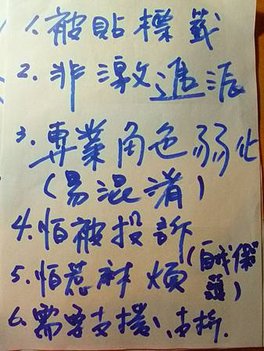 1.被貼標籤
2.非激進派
3.專業角色弱化
(易混淆)
4.怕被投訴
5.怕惹麻煩(自我保護)
6.需要支援、支持.